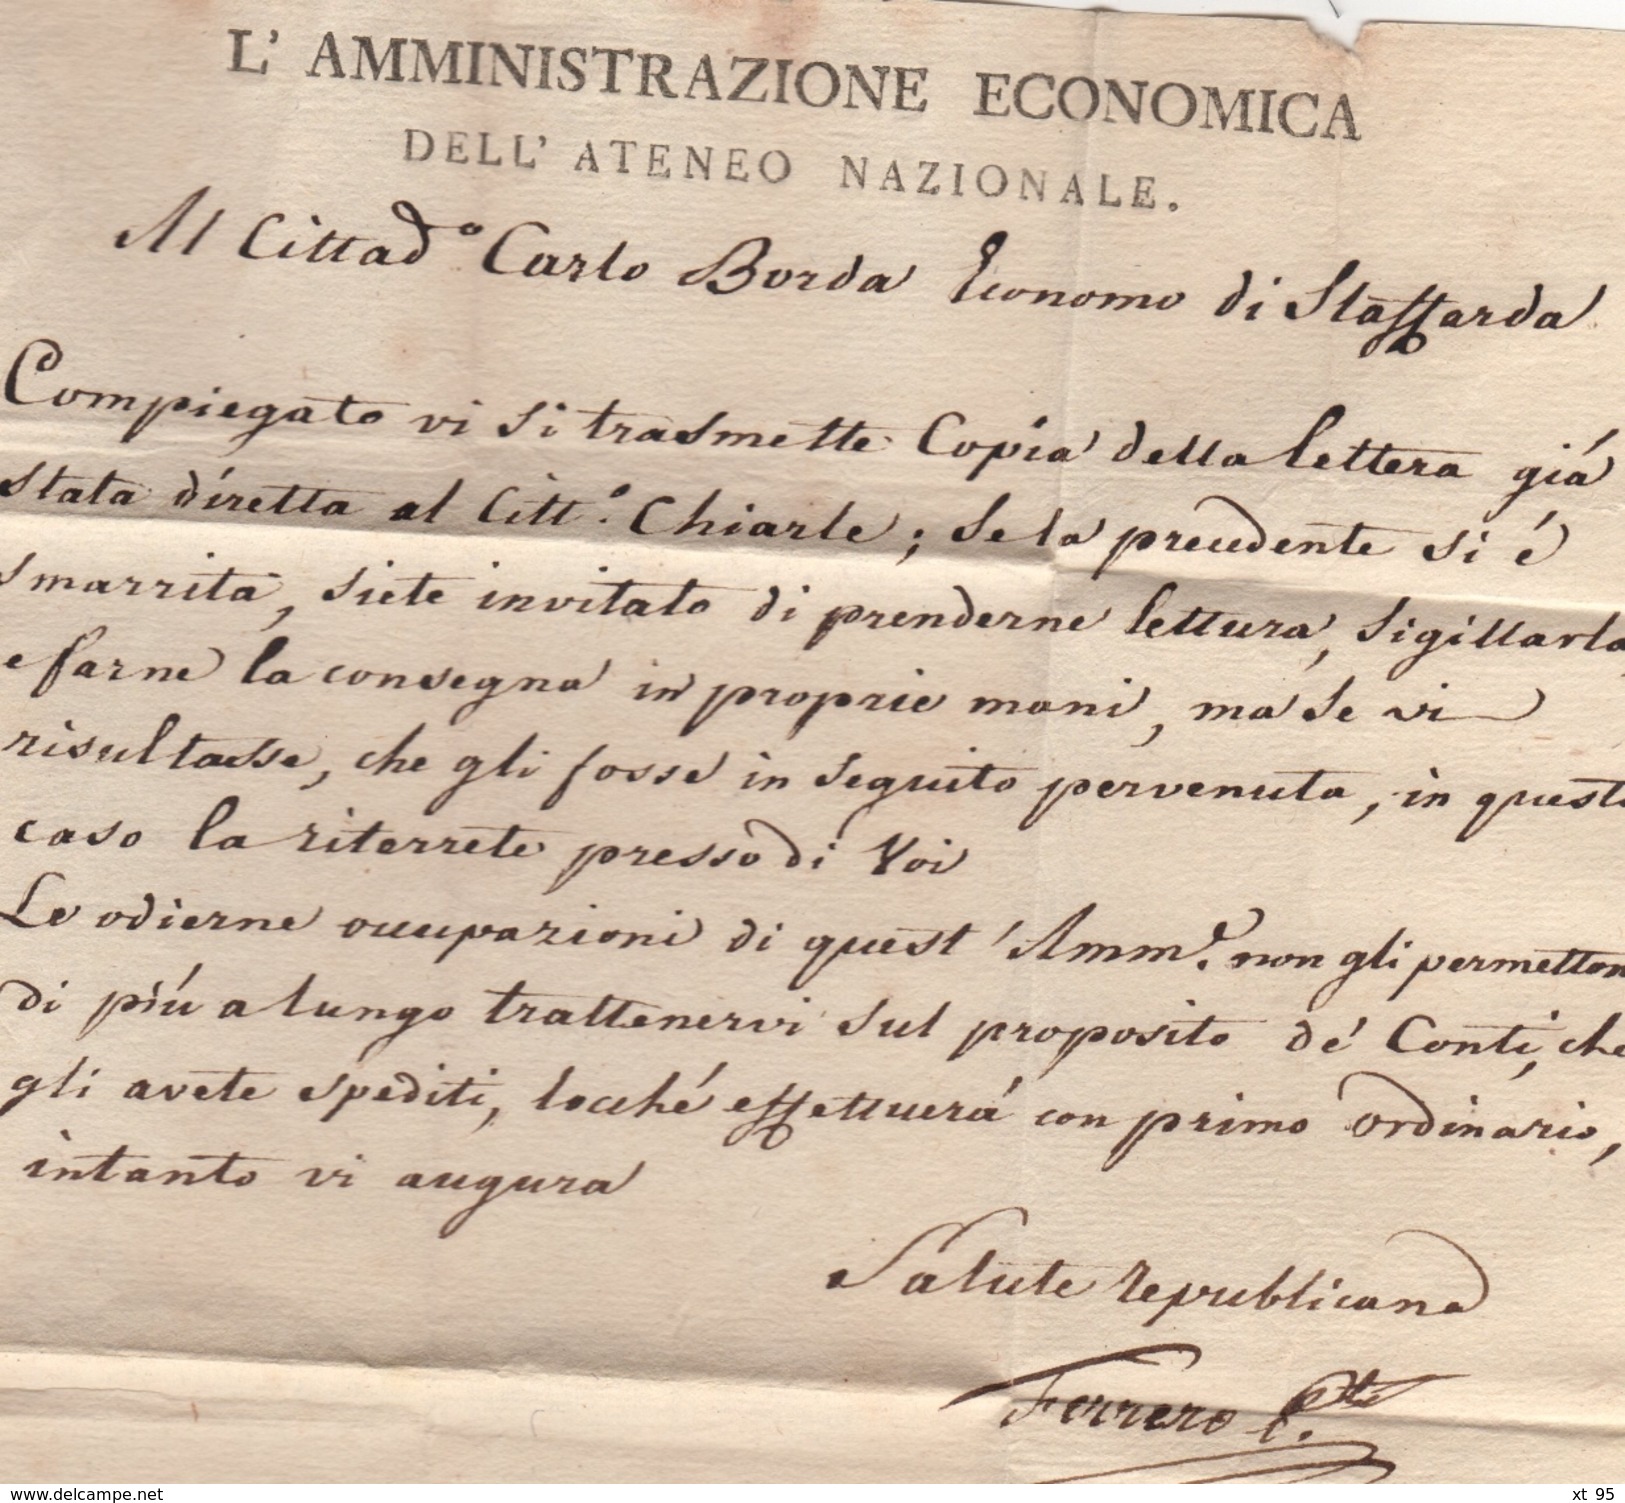 L' AMMINISTRAZIONE ECONOMICA
DELL' ATENEO NAZIONALE.
Al Cittad.º Carlo Borda Economo di Staffarda
Compiegato vi si trasmette Copia della lettera giá
stata diretta al Citt.º Chiarle; se la precedente si é
smarrita, siete invitato di prenderne lettura, sigillarla
e farne la consegna in proprie mani, ma se vi
risultasse, che gli fosse in seguito pervenuta, in questo
caso la riterrete presso di Voi
Le odierne occupazioni di quest' Amm.e non gli permetton
di piú a lungo trattenervi sul proposito de' Conti, che
gli avete spediti, locché effettuerá con primo ordinario,
intanto vi augura
Salute republicana
Ferrero P.te
www.delcampe.net
xt 95